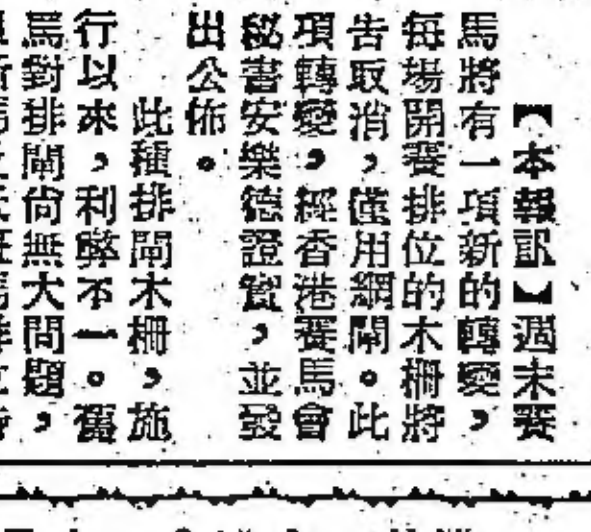 【本報訊】週末賽
馬將有一項新的轉變，
每場開賽排位的木柵將
告取消，僅用網閘。此
項轉變，經香港賽馬會
秘書安樂德證實，並發
出公佈。
此種排閘木柵，施
行以來，利弊不一。舊
馬對排閘尚無大問題，